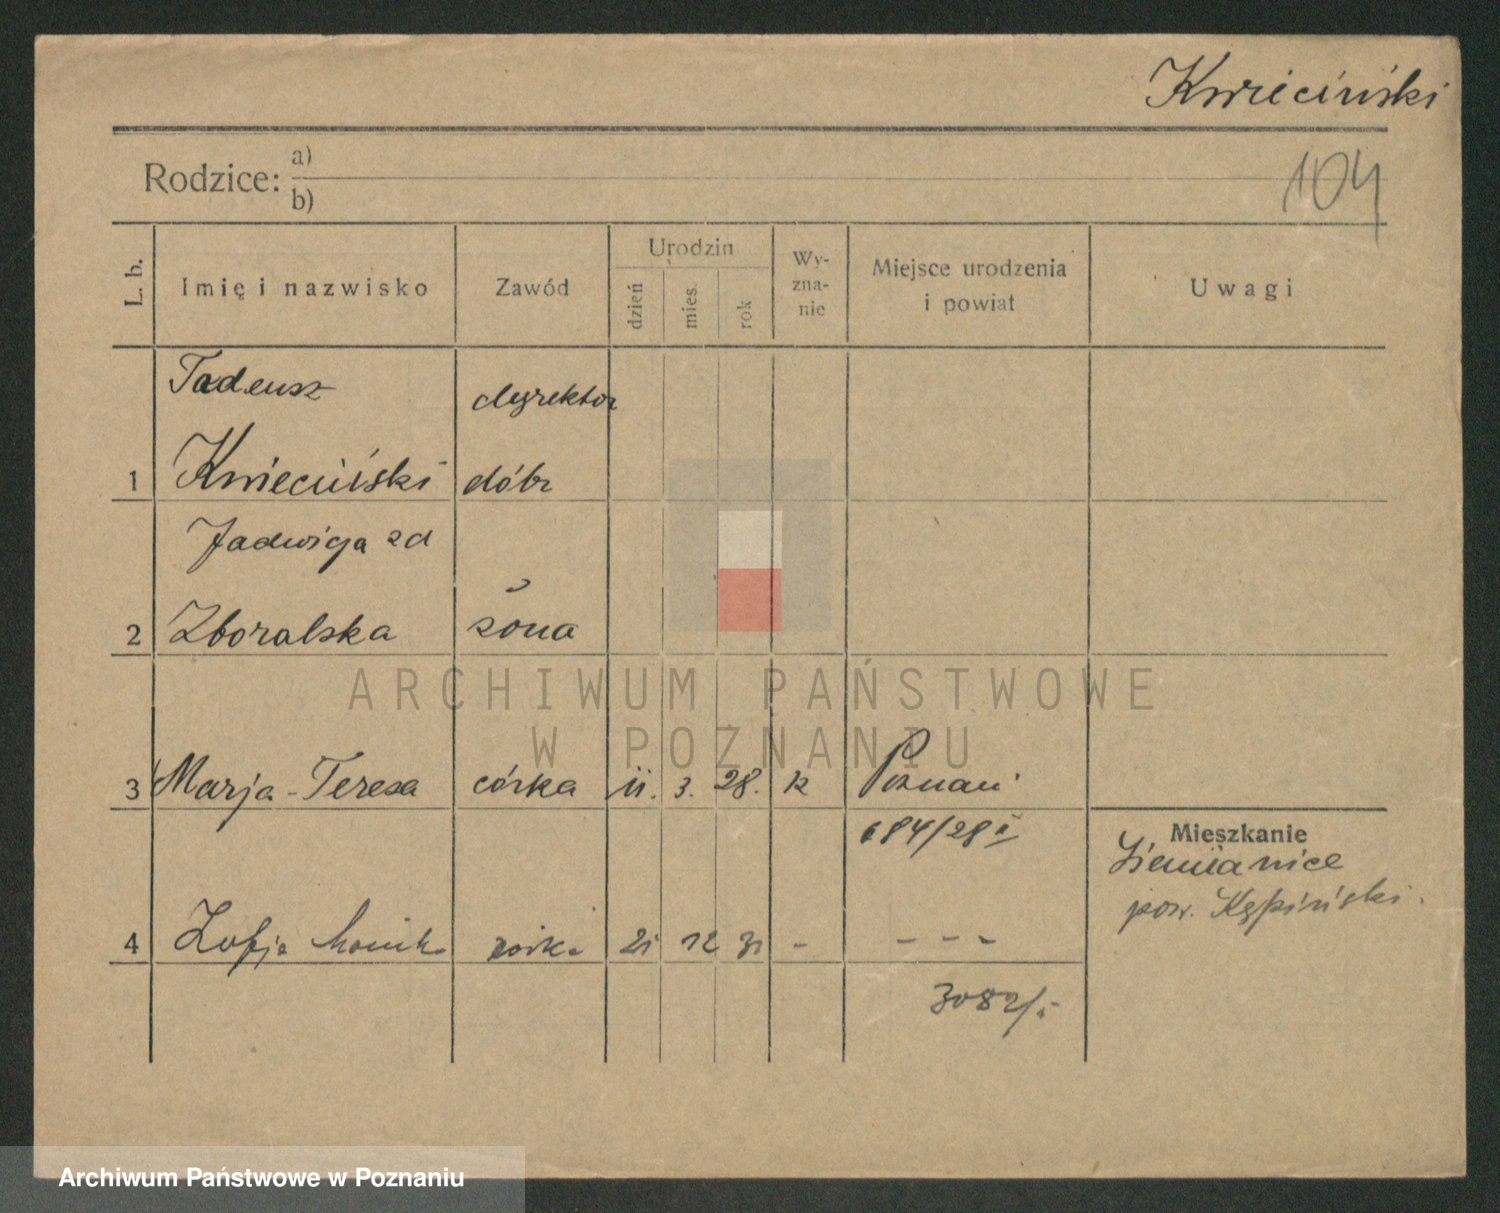 Kwieciński
104
Rodzice: a)
b)
L. b.
Imię i nazwisko
Zawód
Urodzin
dzień
mies.
rok
Wy-
zna-
nie
Miejsce urodzenia
i powiat
Uwagi
Tadeusz dyrektor
1 Kwieciński dóbr
Jadwiga zd
2 Zboralska żona
3 Marja-Teresa córka 11. 3. 28. k Poznań
684/28 I
4 Zofja córka 21 12 31 - - - -
3082/I
Mieszkanie
Siemianice
pow. Kępiński.
ARCHIWUM PAŃSTWOWE
W POZNANIU
Archiwum Państwowe w Poznaniu